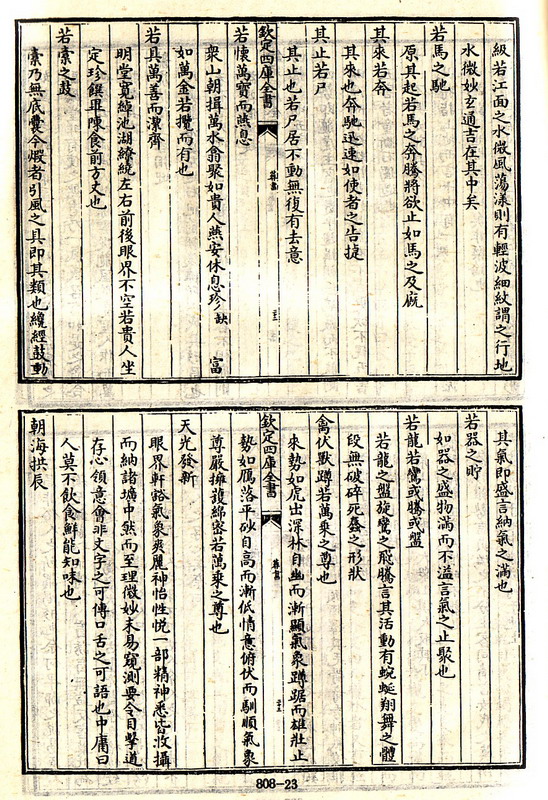 級若江面之水微風蕩漾則有輕波細紋謂之行地
水微妙玄通吉在其中矣
若馬之馳
原其起若馬之奔騰將欲止如馬之及廐
其來若奔
其來也奔馳迅速如使者之告捷
其止若尸
其止也若尸居不動無復有去意
欽定四庫全書
葬書
若懷萬寶而燕息
衆山朝揖萬水翕聚如貴人燕安休息珍 缺 富
如萬金若攬而有也
若具萬善而潔齊
明堂寬綽池湖繚繞左右前後眼界不空若貴人坐
定珍饌畢陳食前方丈也
若橐之鼓
橐乃無底囊今煅者引風之具即其類也纔經鼓動
其氣即盛言納氣之滿也
若器之貯
如器之盛物滿而不溢言氣之止聚也
若龍若鸞或騰或盤
若龍之盤旋鸞之飛騰言其活動有蜿蜒翔舞之體
段無破碎死蠢之形狀
禽伏獸蹲若萬乘之尊也
來勢如虎出深林自幽而漸顯氣象蹲踞而雄壯止
欽定四庫全書
葬書
勢如鴈落平砂自高而漸低情意俯伏而馴順氣象
尊嚴擁護綿密若萬乘之尊也
天光發新
眼界軒豁氣象爽麗神怡性悅一部精神悉皆收攝
而納諸壙中然而至理微妙未易窺測要令目擊道
存心領意會非文字之可傳口舌之可語也中庸曰
人莫不飲食鮮能知味也
朝海拱辰
808-23